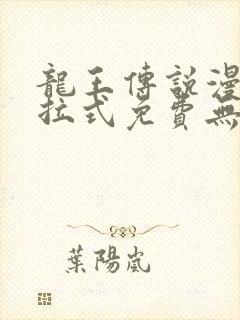 龍王傳說漫
拉式免費無
葉陽嵐